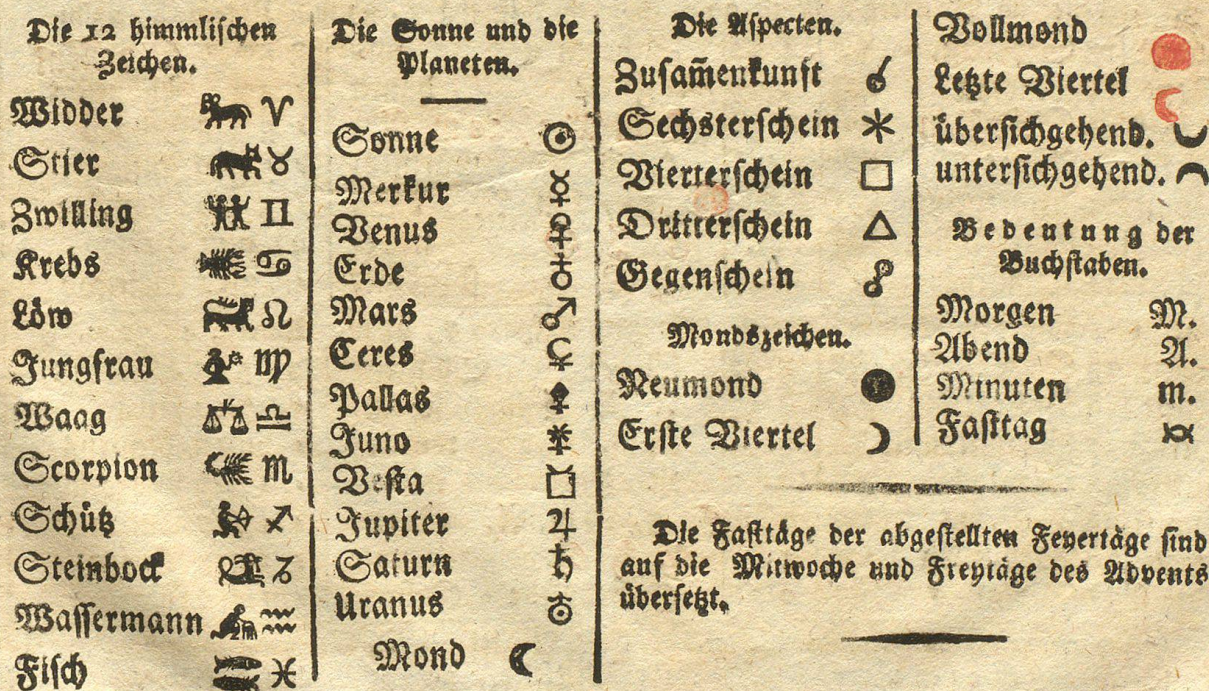 Die 12 himmlischen
Zeichen.
Widder ♈
Stier ♉
Zwilling ♊
Krebs ♋
Löw ♌
Jungfrau ♍
Waag ♎
Scorpion ♏
Schütz ♐
Steinbock ♑
Wassermann ♒
Fisch ♓
Die Sonne und die
Planeten.
Sonne ☉
Merkur ☿
Venus ♀
Erde ♁
Mars ♂
Ceres ⚳
Pallas ⚴
Juno ⚵
Vesta ⚶
Jupiter ♃
Saturn ♄
Uranus ⛢
Mond ☾
Die Aspecten.
Zusam̄enkunft ☌
Sechsterschein ⚹
Vierterschein □
Dritterschein △
Gegenschein ☍
Mondszeichen.
Neumond ●
Erste Viertel ☽
Vollmond
Letzte Viertel
übersichgehend.
untersichgehend.
Bedeutung der
Buchstaben.
Morgen M.
Abend A.
Minuten m.
Fasttag
Die Fasttäge der abgestellten Feyertäge sind
auf die Mittwoche und Freytäge des Advents
übersetzt.